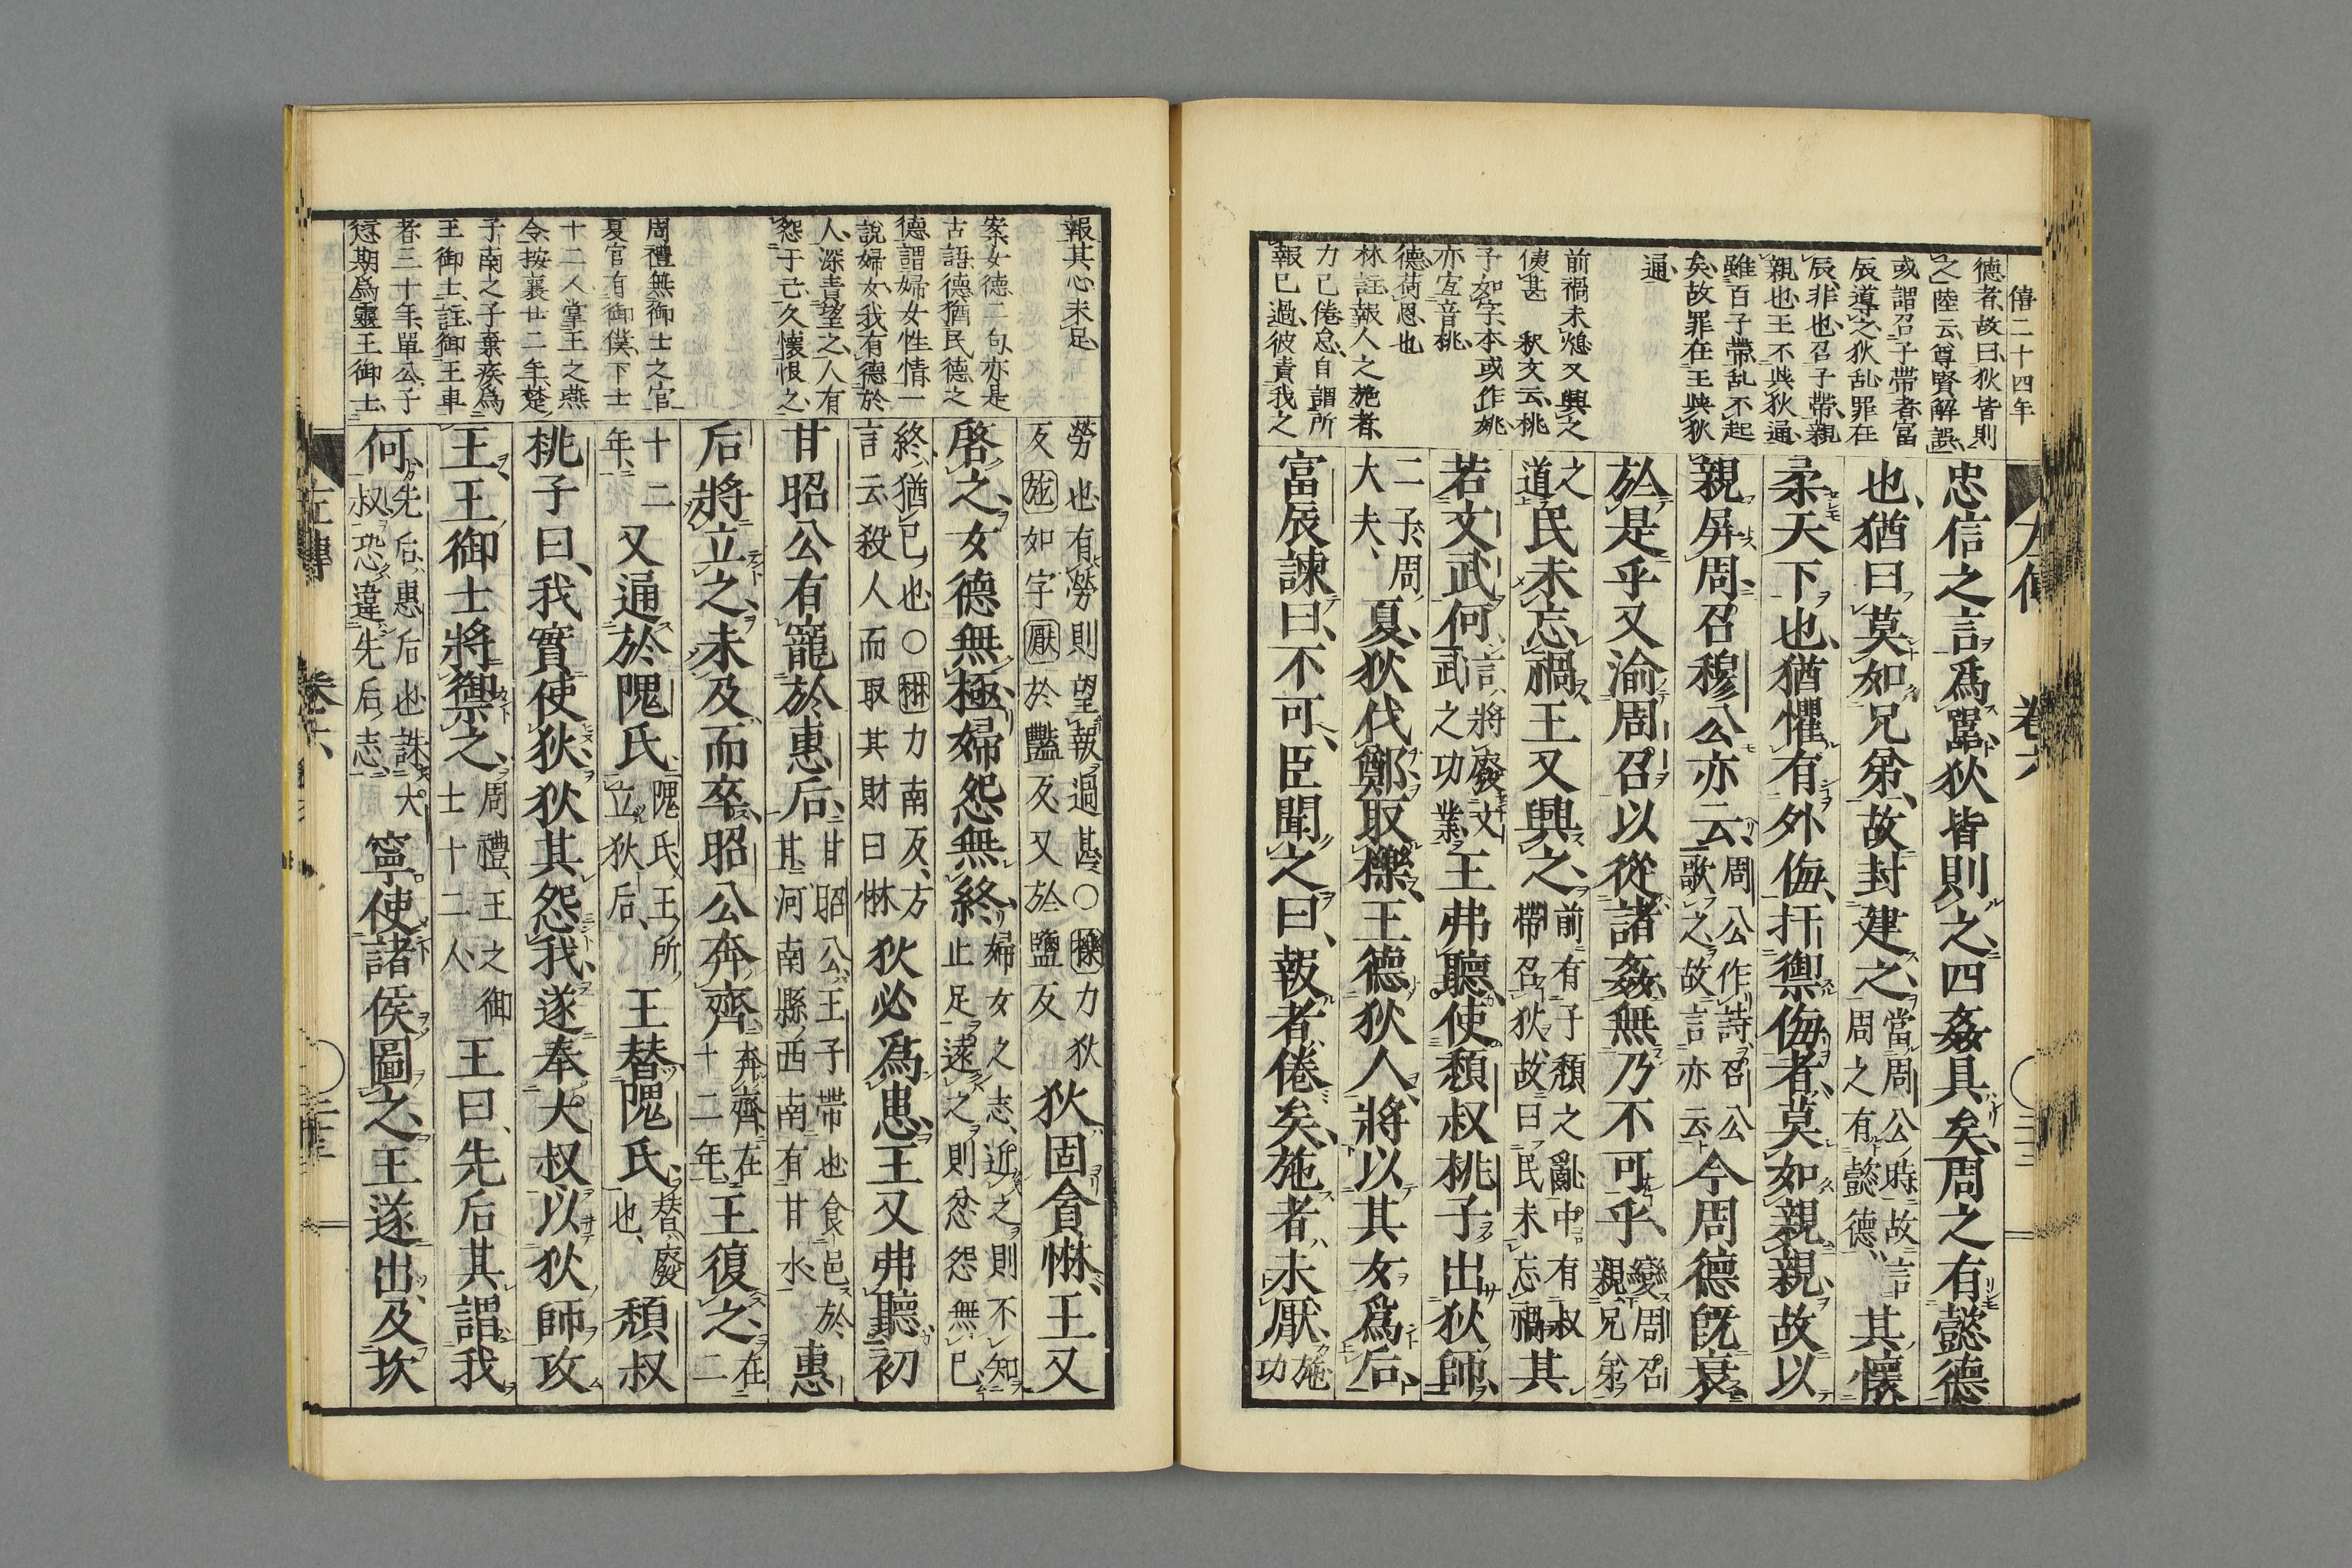 僖二十四年
德者故曰狄皆則
之陸云尊賢解誤
或謂召子帶者富
辰導之狄乱罪在
辰非也召子帶親
親也王不與狄通
雖百子帶乱不起
矣故罪在王與狄
通
前禍未熄又興之
甚 釈文云桃
子如字本或作姚
亦宜音桃
德荷恩也
林註報人之施者
力已倦怠自謂所
報已過彼責我之
忠信之言爲嚚狄皆則之四姦具矣周之有懿德
也猶曰莫如兄弟故封建之當周公時故言周之有懿德其懷
柔天下也猶懼有外侮扞禦侮者莫如親親故以
親屏周召穆公亦云周公作詩召公歌之故言亦云今周德既衰
於是乎又渝周召以從諸姦無乃不可乎變周召親兄弟
之道民未忘禍王又興之前有子頹之亂中有叔帶召狄故曰民未忘禍其
若文武何言將廢文武之功業王弗聽使頹叔桃子出狄師
二子周大夫夏狄伐鄭取櫟王德狄人將以其女爲后
富辰諫曰不可臣聞之曰報者倦矣施者未厭施功
左傳 卷六
報其心未足
案女德二句亦是
古語德猶民德之
德謂婦女性情一
說婦女我有德於
人深責望之人有
怨于己久懷恨之
周禮無御士之官
夏官有御僕下士
十二人掌王之燕
令按襄廿二年楚
子南之子棄疾爲
王御士註御王車
者三十年單公子
愆期爲靈王御士
勞也有勞則望報過甚○櫟力狄反施如字厭於豔反又於鹽反狄固貪惏王又
啓之女德無極婦怨無終婦女之志近之則不知止足遠之則忿怨無已
終猶已也○惏力南反方言云殺人而取其財曰惏狄必爲患王又弗聽初
甘昭公有寵於惠后甘昭公王子帶也食邑於甘河南縣西南有甘水惠
后將立之未及而卒昭公奔齊奔齊在十二年王復之在二
十二年又通於隗氏隗氏王所立狄后王替隗氏替廢也頹叔
桃子曰我實使狄狄其怨我遂奉大叔以狄師攻
王王御士將禦之周禮王之御士十二人王曰先后其謂我
何先后惠后也誅大叔恐違先后志寧使諸侯圖之王遂出及坎
左傳 卷六